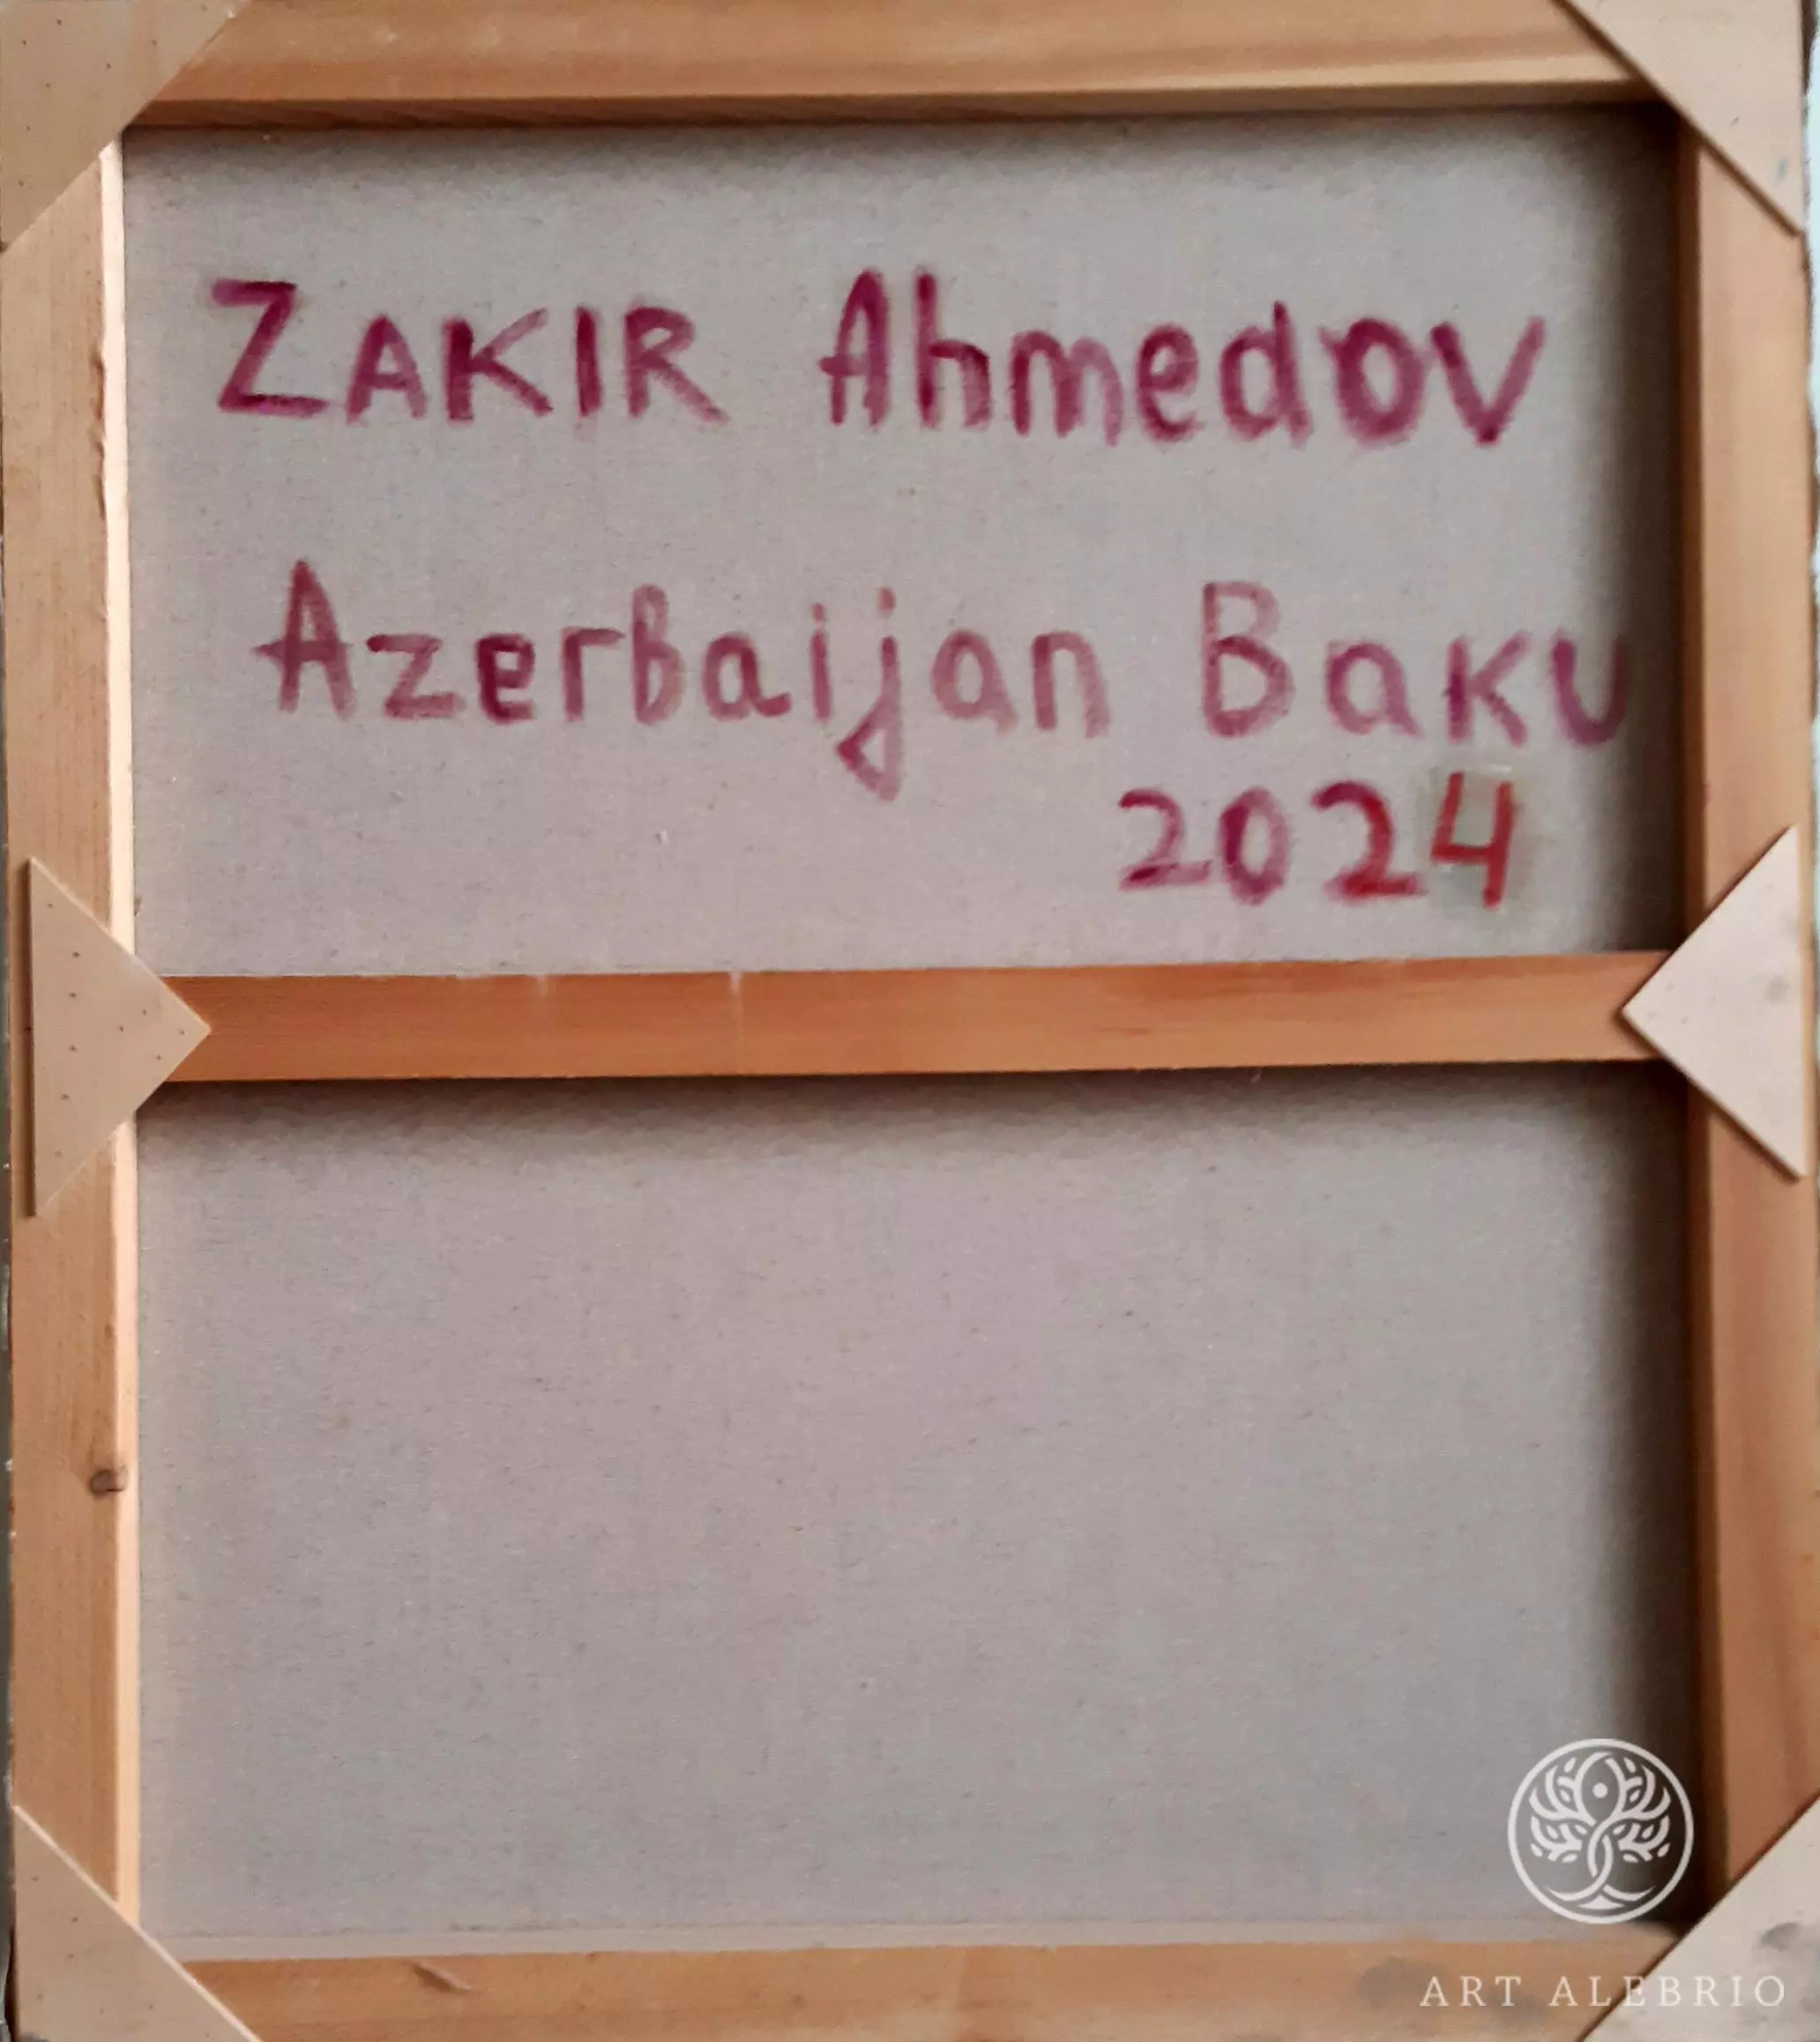 ZAKIR Ahmedov
Azerbaijan Baku
2024
ART ALEBRIO